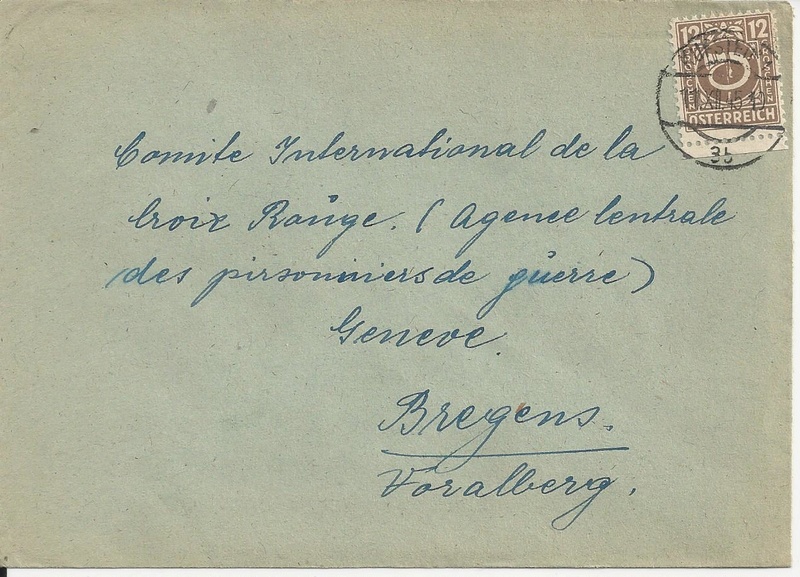 12 12
GROSCHEN GROSCHEN
ÖSTERREICH
3b
Comite International de la
Croix Roŭge. (Agence Centrale
des pirsonniers de gŭerre)
Geneve
Bregens.
Voralberg.